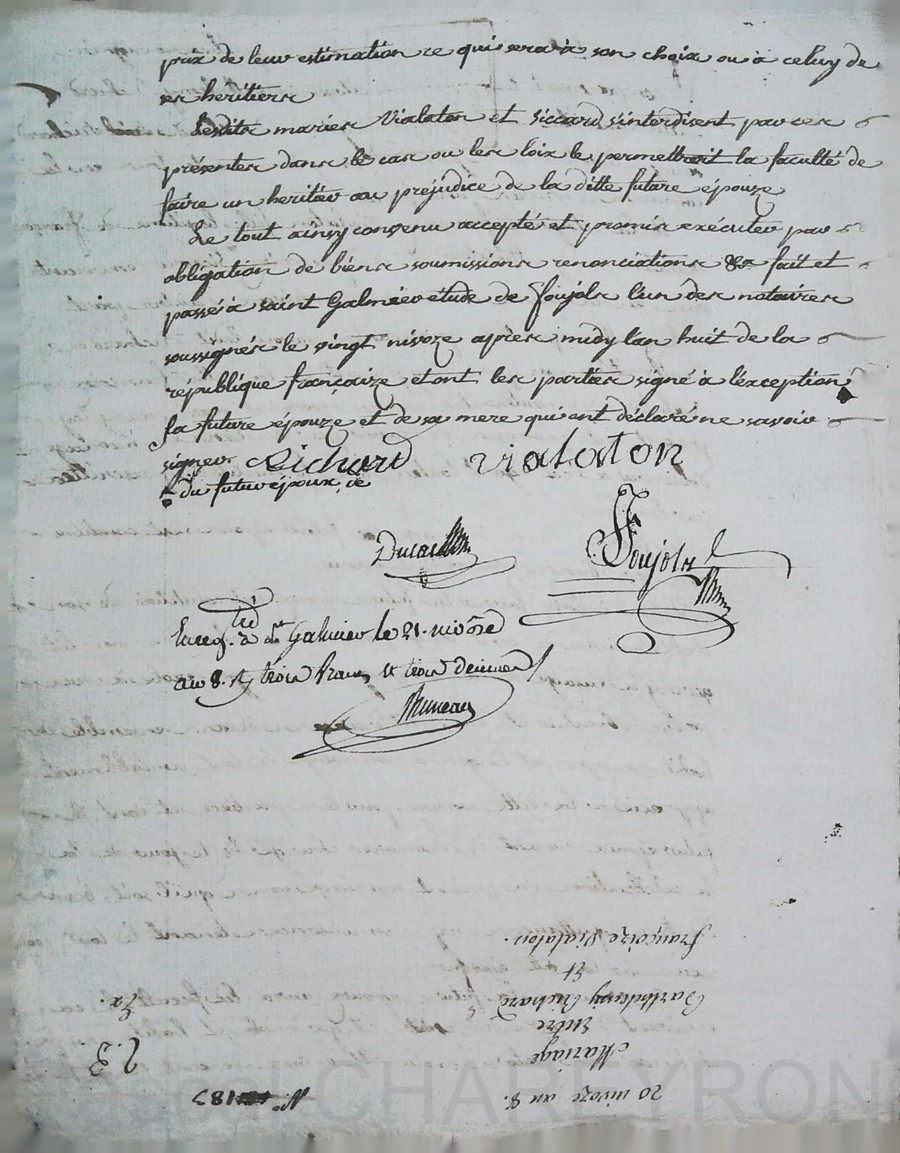 prix de leur estimation ce qui sera à son choix ou à celuy de
ses heritiers
Lesdits mariés Vialaton et Siccard s'interdisent par ces
présentes dans le cas ou les loix le permettroit la faculté de
faire un heritier au préjudice de la ditte future épouze
Le tout ainsy convenu accepté et promis exécuter par
obligation de biens soumissions renonciations &a fait et
passé à saint Galmier étude de Foujols l'un des notaires
soussignés le vingt nivoze après midy l'an huit de la
république françaize et ont les parties signé à l'exception
la future épouze et de sa mere qui ont déclaré ne savoir
signer Richard vialaton
du futur époux, de
Foujols
Enreg.tré à St Galmier le 21. nivôse
an 8. trois francs et trois décimes
Bruneau
20 nivoze an 8.
Mariage
Entre
Barthelemy Richard
Et
Françoize Vialaton.
Ex.
N° 187
CHAPEYRON